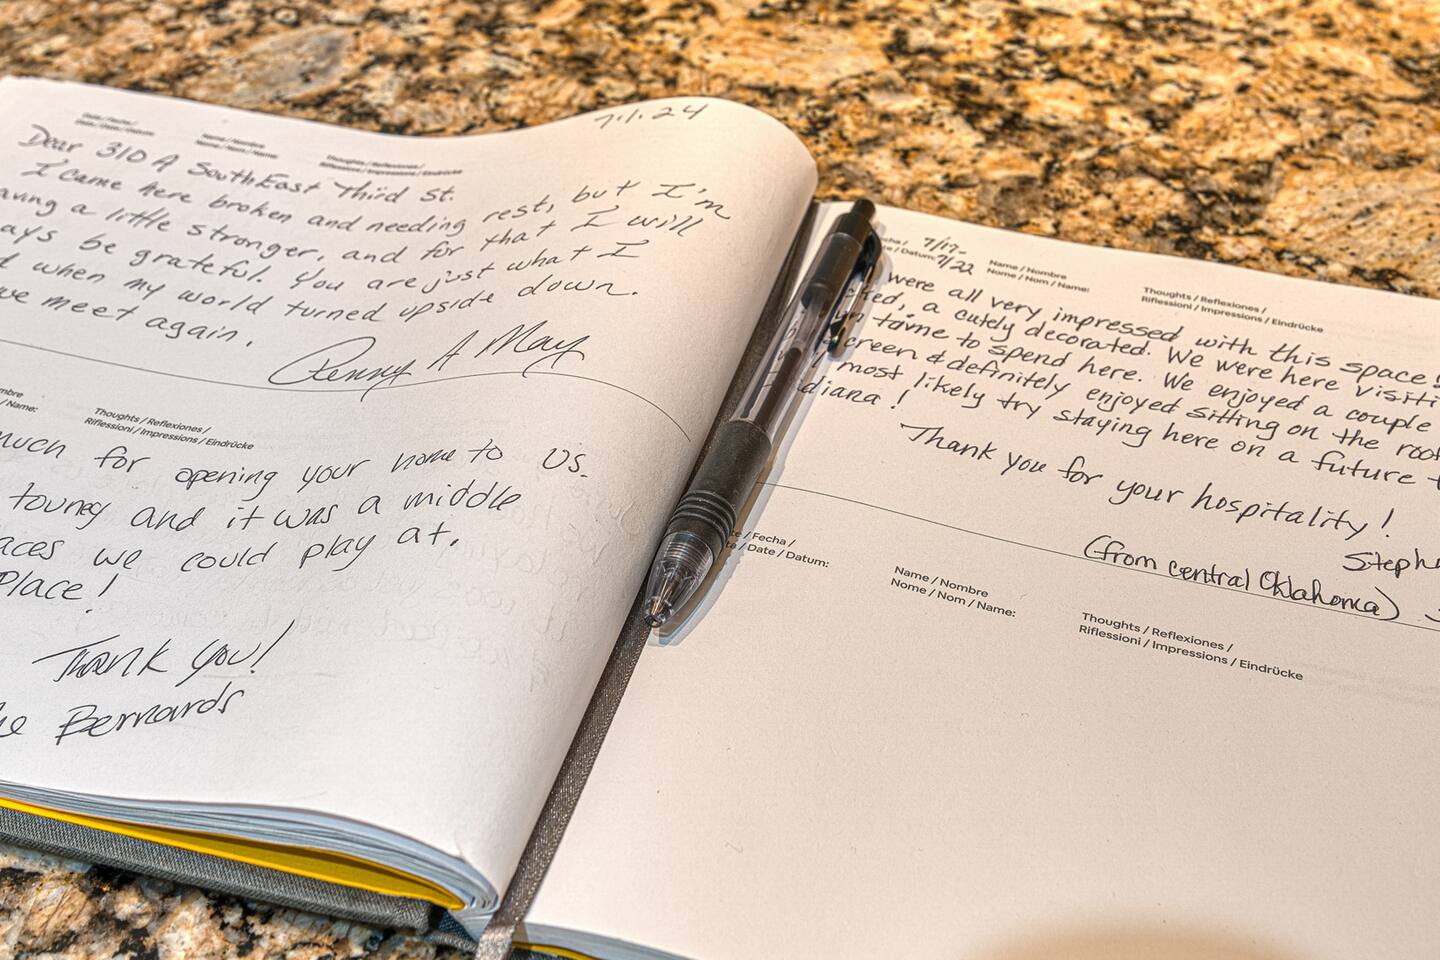 7.1.24
Date / Fecha /
Data / Date / Datum:
Name / Nombre
Nome / Nom / Name:
Thoughts / Reflexiones /
Riflessioni / Impressions / Eindrücke
Dear 310 A SouthEast Third St.
I came here broken and needing rest, but I'm
aving a little stronger, and for that I will
ays be grateful. You are just what I
d when my world turned upside down.
we meet again.
Penny A May
mbre
/ Name:
Thoughts / Reflexiones /
Riflessioni / Impressions / Eindrücke
much for opening your home to us.
tourney and it was a middle
aces we could play at.
Place!
Thank you!
he Bernards
echa /
e / Datum:
7/17-
7/22
Name / Nombre
Nome / Nom / Name:
Thoughts / Reflexiones /
Riflessioni / Impressions / Eindrücke
were all very impressed with this space!
cked, a cutely decorated. We were here visiti
un time to spend here. We enjoyed a couple
creen & definitely enjoyed sitting on the roof
most likely try staying here on a future t
diana!
Thank you for your hospitality!
Steph
(from central Oklahoma)
te / Fecha /
ta / Date / Datum:
Name / Nombre
Nome / Nom / Name:
Thoughts / Reflexiones /
Riflessioni / Impressions / Eindrücke